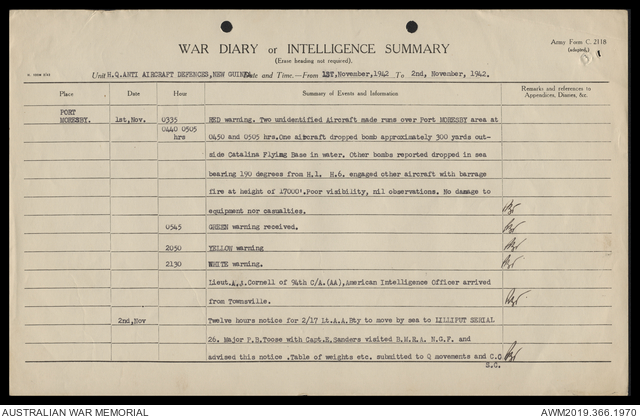 WAR DIARY or INTELLIGENCE SUMMARY
Army Form C. 2118
(adapted.)
(Erase heading not required).
Unit H.Q.ANTI AIRCRAFT DEFENCES,NEW GUINEA Date and Time.—From 1ST,November,1942 To 2nd, November, 1942.
Place Date Hour Summary of Events and Information Remarks and references to Appendices, Diaries, &c.
PORT MORESBY. 1st,Nov. 0335 RED warning. Two unidentified Aircraft made runs over Port MORESBY area at
0440 0505 hrs 0450 and 0505 hrs.One aircraft dropped bomb approximately 300 yards out-
side Catalina Flying Base in water. Other bombs reported dropped in sea
bearing 190 degrees from H.1. H.6. engaged other aircraft with barrage
fire at height of 17000'.Poor visibility, nil observations. No damage to
equipment nor casualties.
0545 GREEN warning received.
2050 YELLOW warning
2130 WHITE warning.
Lieut.A.J.Cornell of 94th C/A.(AA),American Intelligence Officer arrived
from Townsville.
2nd,Nov Twelve hours notice for 2/17 Lt.A.A.Bty to move by sea to LILLIPUT SERIAL
26. Major P.B.Toose with Capt.E.Sanders visited B.M.R.A. N.G.F. and
advised this notice .Table of weights etc. submitted to Q movements and C.C
S.C.
AUSTRALIAN WAR MEMORIAL
AWM2019.366.1970